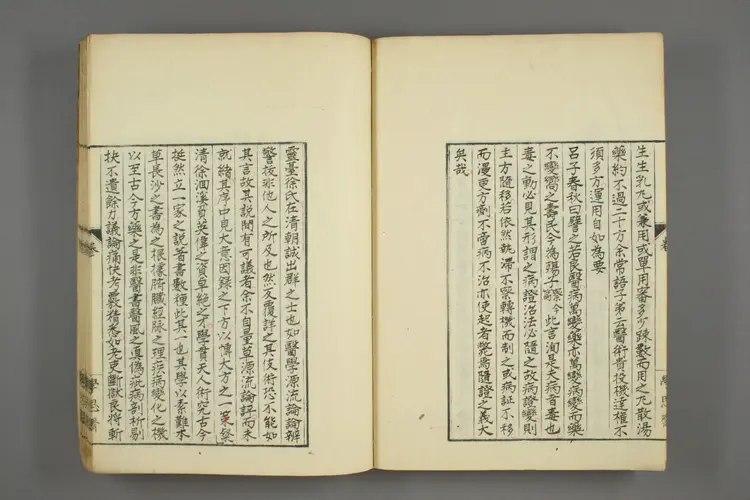 生生乳九或兼用或單用審多少疎數而用之九散湯
藥約不過二十方余常語子弟云醫術貴投機達權不
須多方運用自如為要
呂子春秋曰譬之若良醫病萬變藥亦萬變病變而藥
不變嚮之壽民今為殤子 此言洵是夫病者毒也
毒之動必見其形謂之病證治法必隨之故病證變則
主方隨移若依然執滯不緊轉機而制之或病証不移
而漫更方劑不啻病不治亦使起者斃焉隨證之義大
矣哉
靈臺徐氏在清朝誠出群之士也如醫學源流論論辨
警拔非他人之所及也然反覆詳之其伎術恐不能如
其言故其說間有可議者余不自量草源流論評而未
就緒其序中見大意因錄之下方以博大方之一粲
清徐洄溪負英偉之資卓絶之才學貫天人術究古今
挺然立一家之說著書數種此其一也其學以素難本
草長沙之書為之根據腑臟經脉之理疾病變化之機
以至古今方藥之是非醫書醫風之真偽疵病剖析剔
抉不遺餘力議論痛快考覈精悉如老吏斷獄良將斬